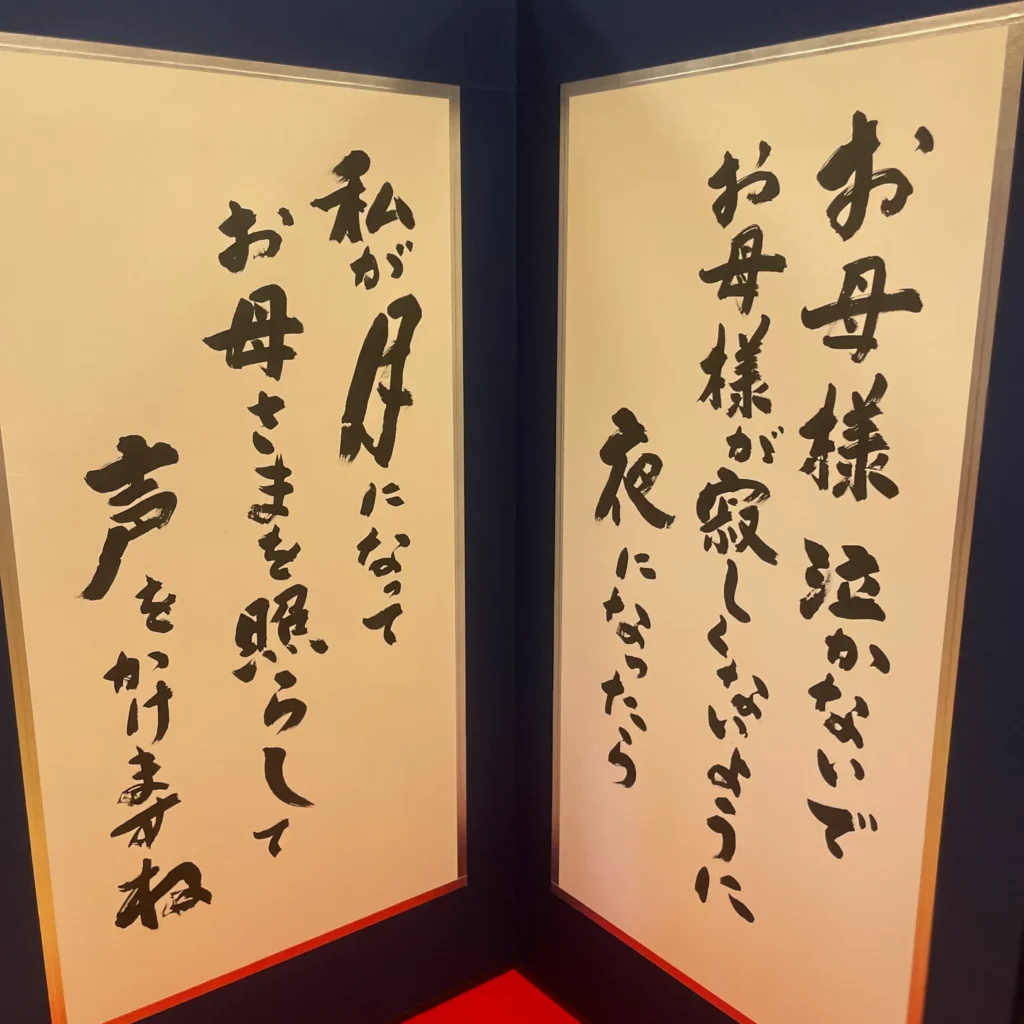 お母様 泣かないで
お母様が寂しくないように
夜になったら
私が月になって
お母さまを照らして
声をかけますね